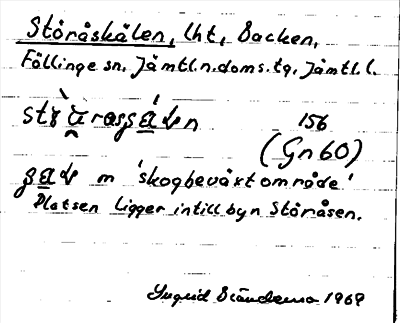 Störåskälen, lht, Backen,
Föllinge sn, Jämtl.n.doms.tg, Jämtl.l.
156
(Gn 60)
m 'skogbeväxt område'
Platsen ligger intill byn Störåsen.
Ingrid 1969